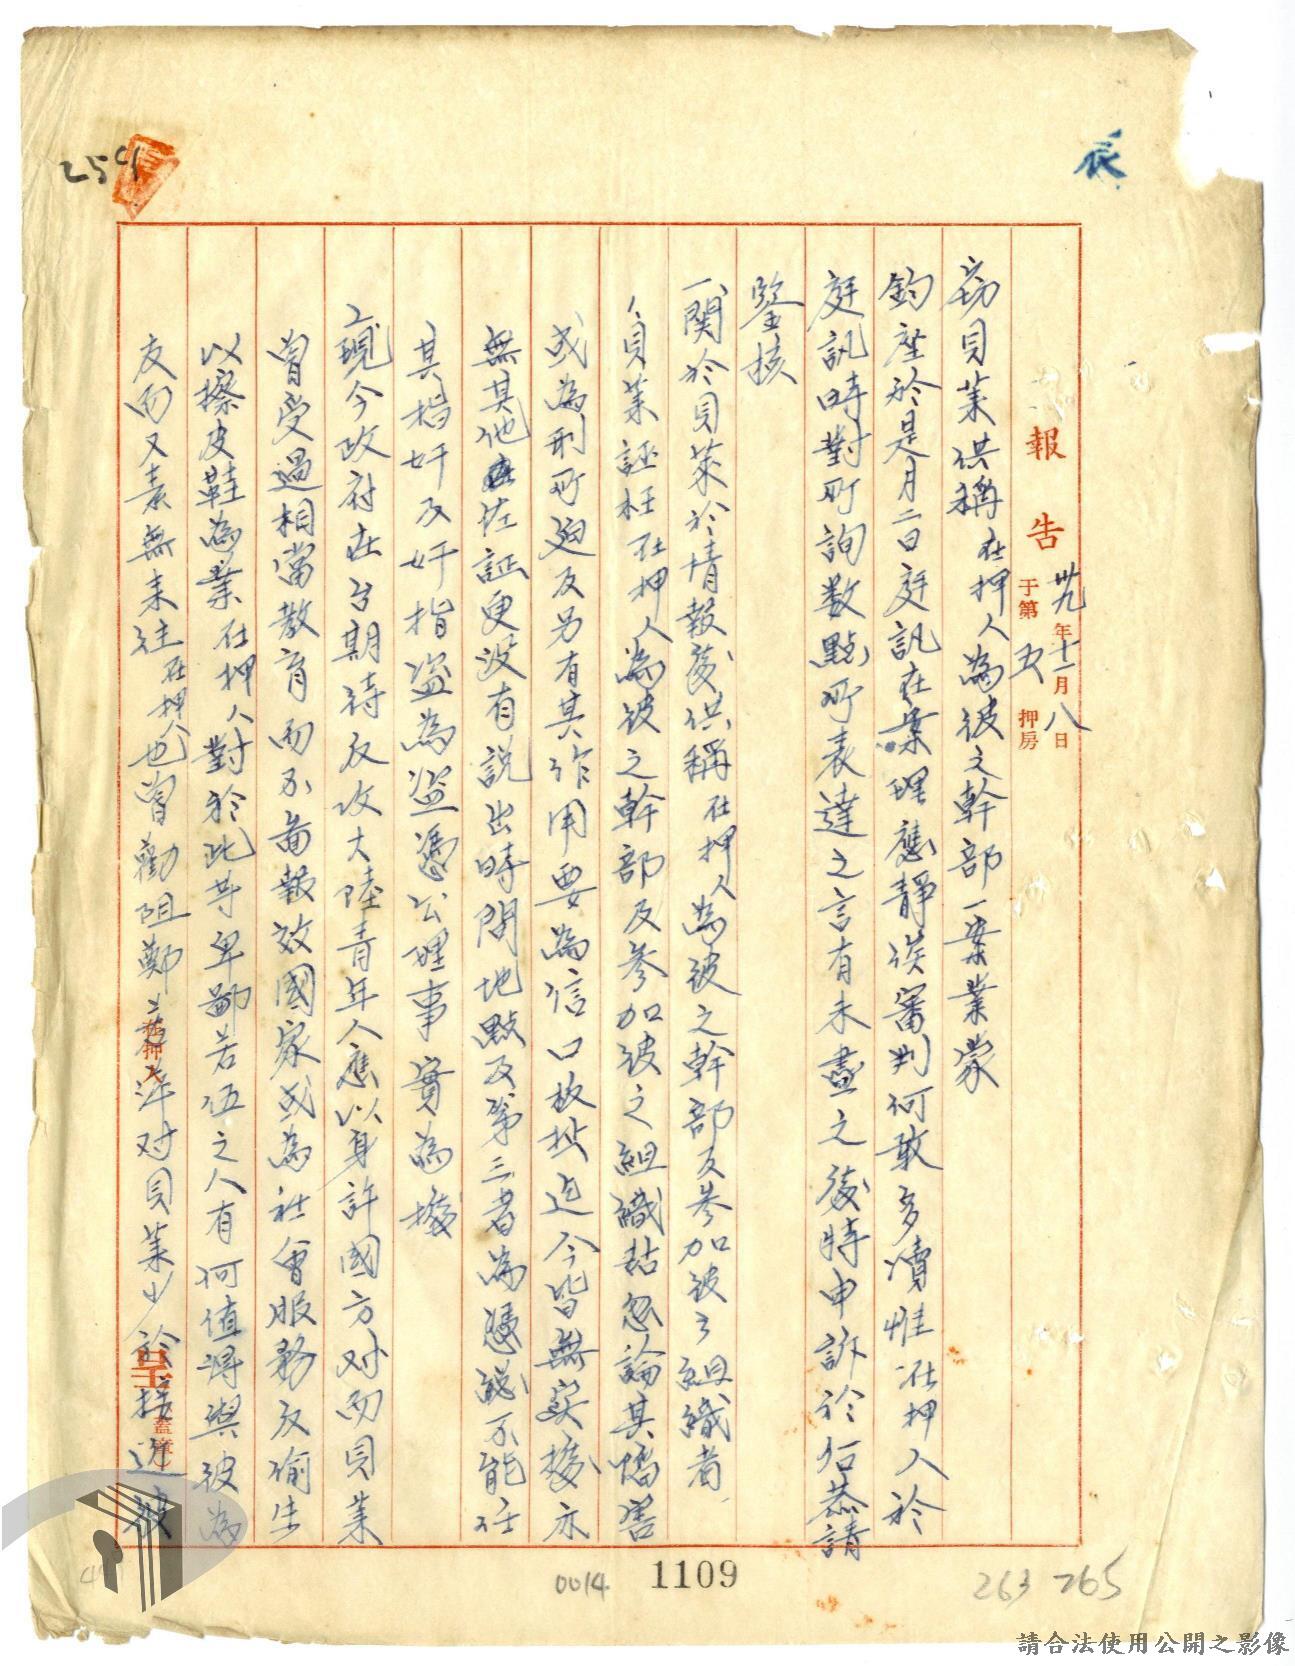 辰
254
報告
卅九年十一月八日
于第五押房
竊貝萊供稱在押人為彼之幹部一案業蒙
鈞座於是月二日庭訊在案理應靜俟審判何敢多瀆惟在押人於
庭訊時對所詢数點所表達之言有未盡之後特申訴於后恭請
鑒核
一、関於貝萊於情報後供稱在押人為彼之幹部及參加彼之組織者
貝萊誣枉在押人為彼之幹部及參加彼之組織姑忽論其惰害
或為刑所迫及另有其作用要為信口放扯迄今皆無实據亦
無其他佐証更没有説出時間地點及第三者為憑總不能任
其指奸及奸指盗為盗憑公理事實為據
二、現今政府在台期待反攻大陸青年人應以身許國方对而貝萊
曾受過相當教育而不啚報效國家或為社會服務反偷生
以擦皮鞋為業在押人對於此等卑鄙若伍之人有何值得與彼為
友而又素無来往在押人也曾勸阻鄭對貝萊少於接近彼
0014
1109
263 265
請合法使用公開之影像